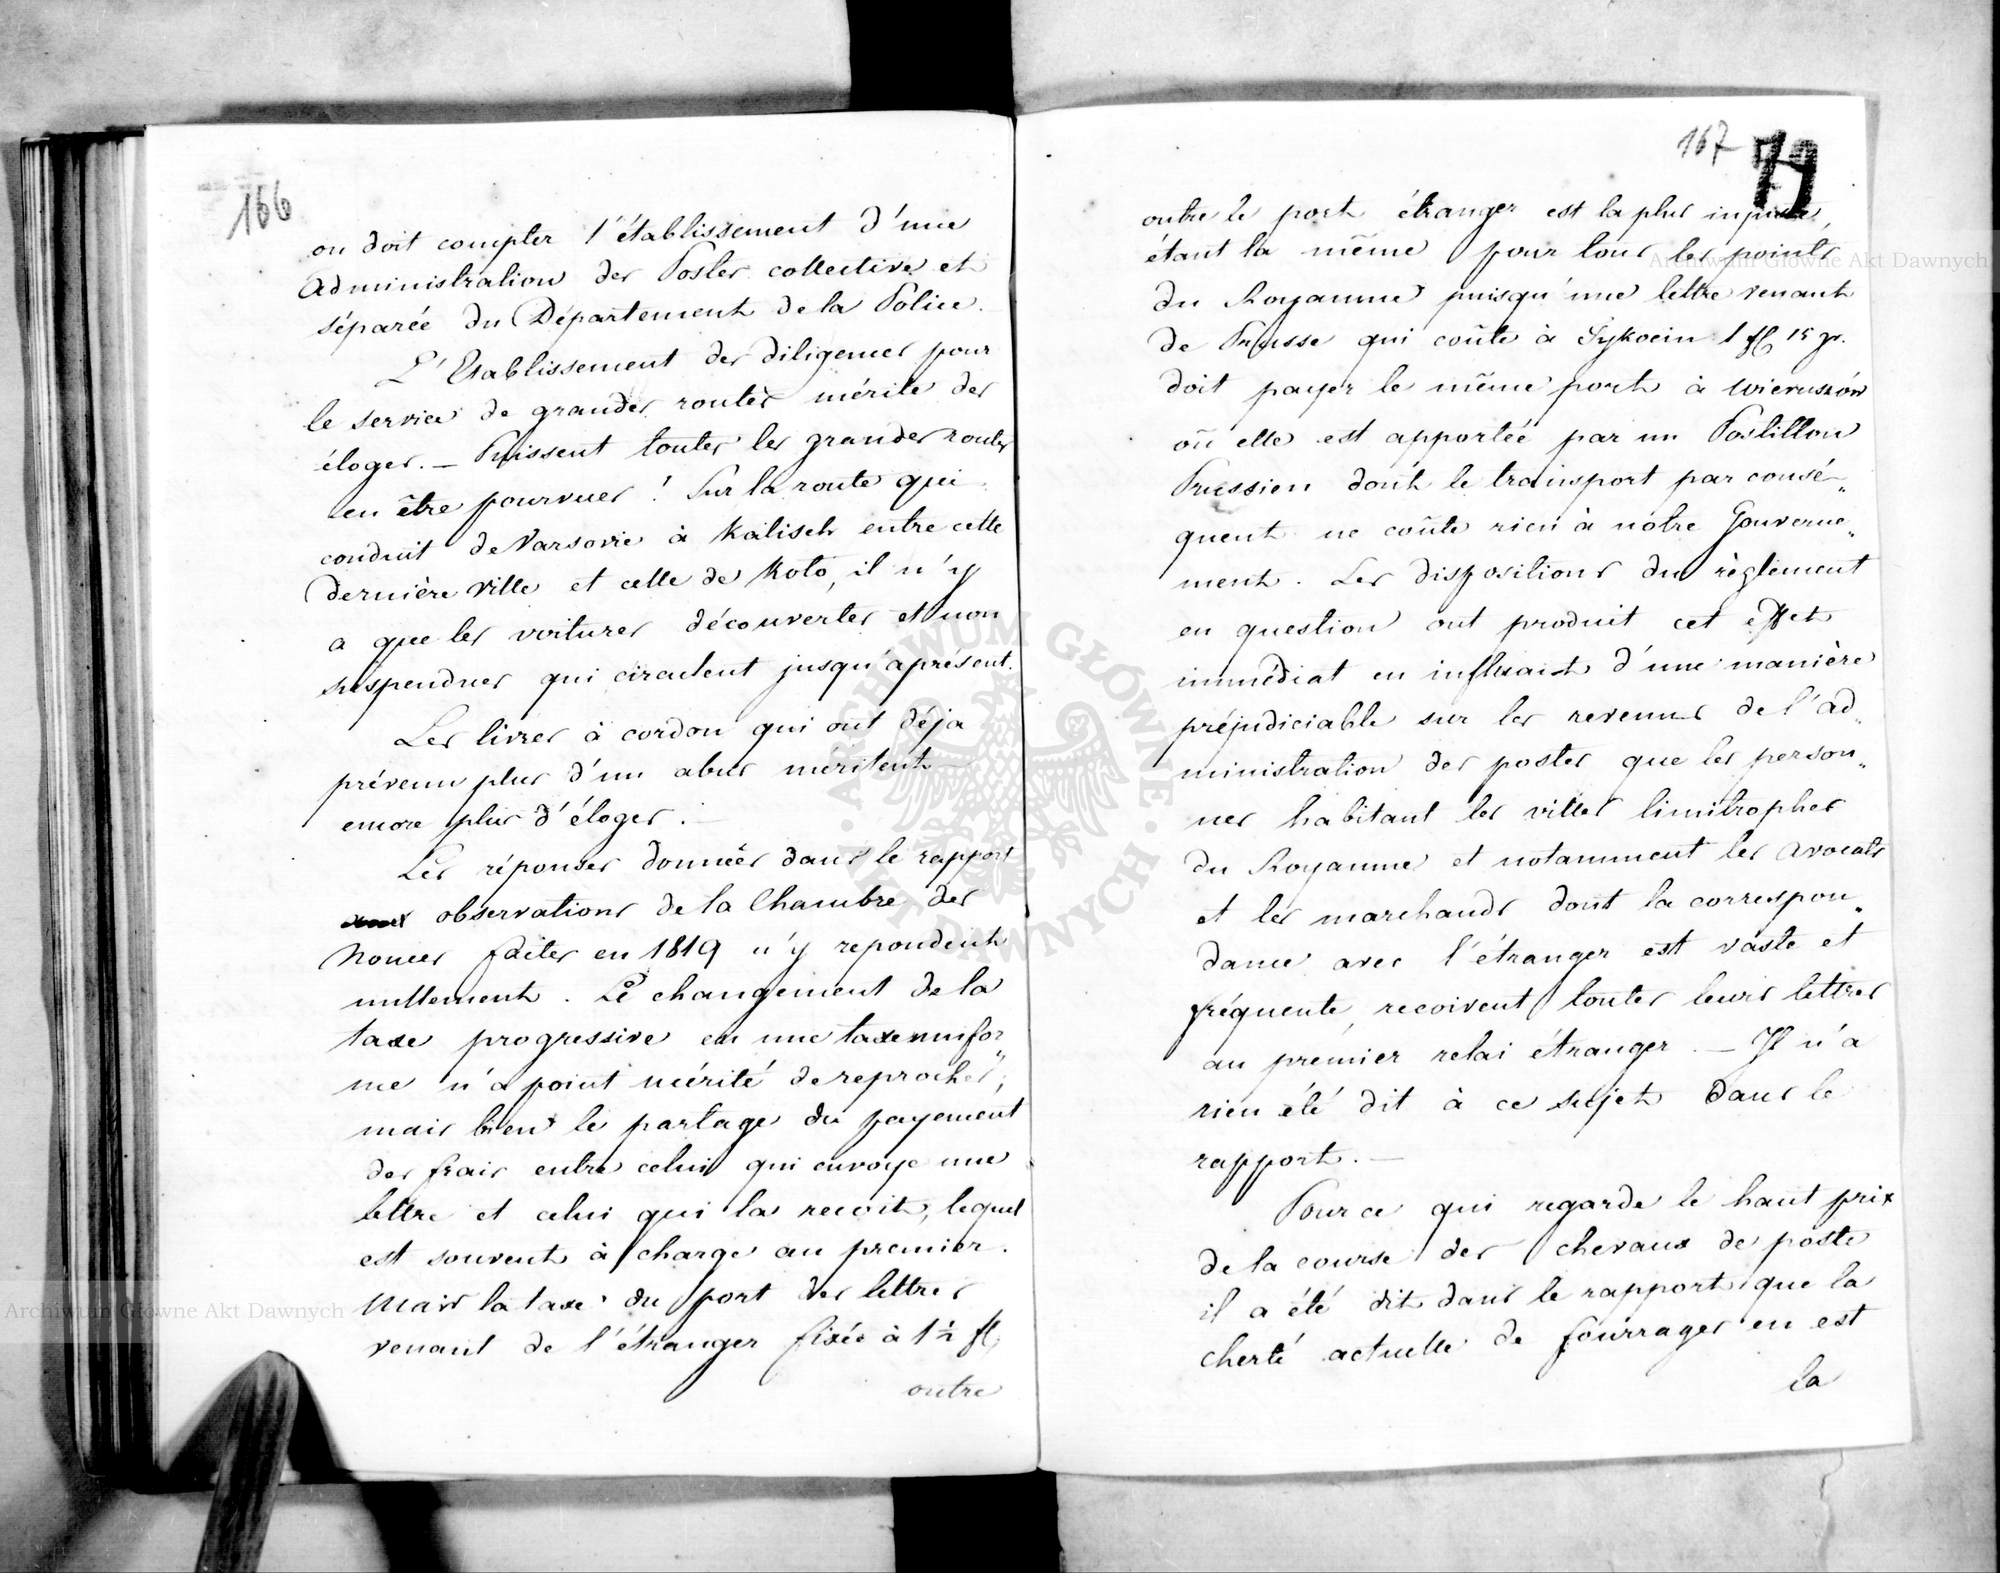 166
on doit compter l'établissement d'une
administration des Postes collective et
séparée du Département de la Police.
L'Etablissement des diligences pour
le service de grandes routes mérite des
éloges. — Puissent toutes les grandes routes
en être pourvues ! Sur la route qui
conduit de Varsovie à Kalisch entre cette
dernière ville et celle de Koło, il n'y
a que les voitures découvertes et non
suspendues qui circulent jusqu'aprésent.
Les livres à cordon qui ont déja
prévenu plus d'un abus méritent
encore plus d'éloges. —
Les réponses données dans le rapport
observations de la Chambre des
Nonces faites en 1819 n'y repondent
nullement. Le changement de la
taxe progressive en une taxe unifor„
me n'a point mérité de reproches;
mais bien le partage du payement
des frais entre celui qui envoye une
lettre et celui qui la recoit, lequel
est souvent à charge au premier.
Mais la taxe du port des lettres
venant de l'étranger fixée à 1½ fl.
outre
167
79
outre le port étranger est la plus injuste,
étant la même pour tous les points
du Royaume puisqu'une lettre venant
de Prusse qui coûte à Tykocin 1 fl 15 gr.
doit payer le même port à Wieruszów
où elle est apportée par un Postillon
Prussien dont le transport par consé„
quent ne coûte rien à nôtre Gouverne„
ment. Les dispositions du règlement
en question ont produit cet effet
immédiat en influant d'une manière
préjudiciable sur les revenus de l'ad„
ministration des postes que les person„
nes habitant les villes limitrophes
du Royaume et notamment les avocats
et les marchands dont la correspon„
dance avec l'étranger est vaste et
fréquente, recoivent toutes leurs lettres
au premier relai étranger. — Il n'a
rien été dit à ce sujet dans le
rapport. —
Pour ce qui regarde le haut prix
de la course des chevaux de poste
il a été dit dans le rapport que la
cherté actuelle de fourrages en est
la
Archiwum Główne Akt Dawnych
Archiwum Główne Akt Dawnych
ARCHIWUM GŁÓWNE AKT DAWNYCH